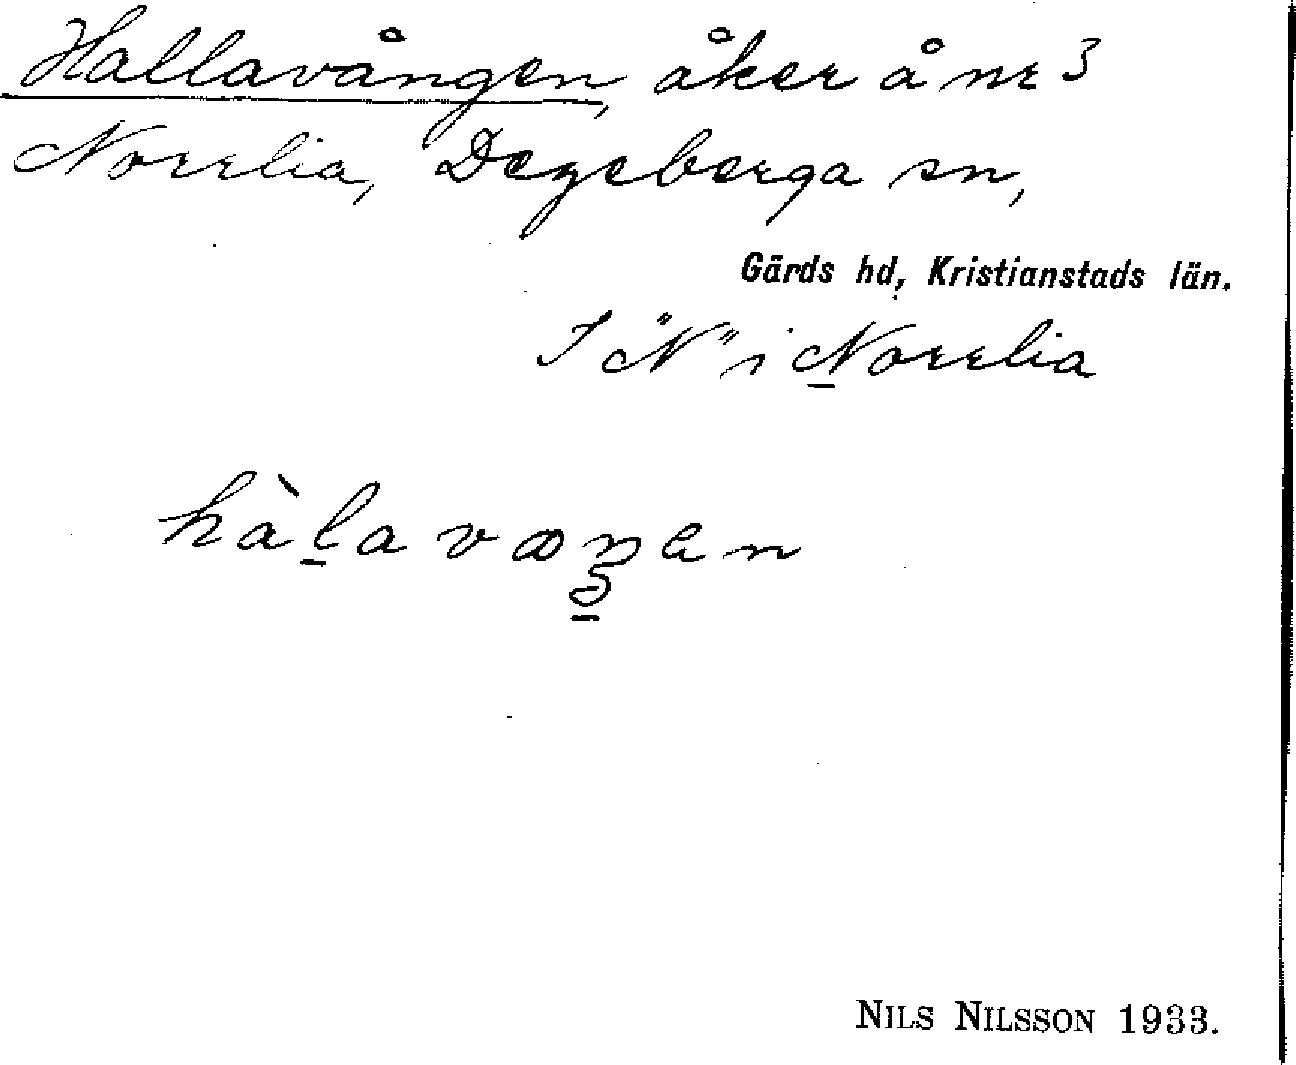 Hallavången, åker å nr 3
Norrlia, Degeberga sn,
Gärds hd, Kristianstads län.
I "N" i Norrlia
hàl̠avꝏŋ̠en
NILS NILSSON 1933.